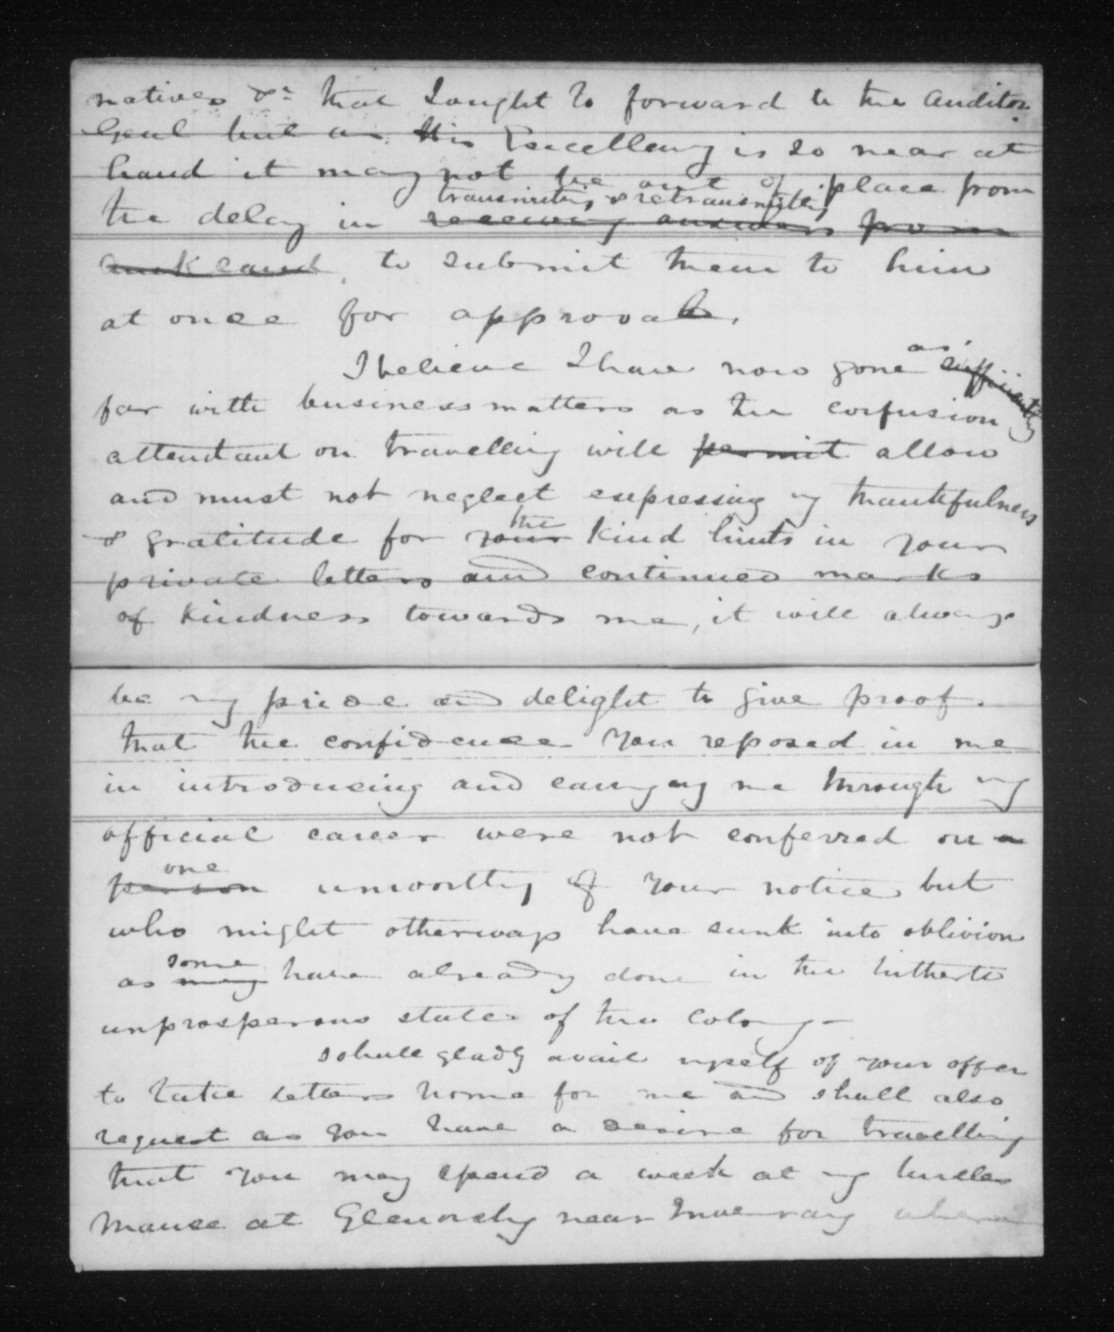 natives &c that I ought to forward to the Auditor
Genl but as His Excellency is so near at
hand it may not be out of place from
transmitting & retransmitting
the delay in receiving answers from
Auckland, to submit them to him
at once for approval.
as
I believe I have now gone sufficiently
far with business matters as the confusion
attendant on travelling will permit allow
and must not neglect expressing my thankfulness
the
& gratitude for your kind hints in your
private letters and continued marks
of kindness towards me, it will always
be my pride and delight to give proof
that the confidence you reposed in me
in introducing and carrying me through my
official career were not conferred on a
one
person unworthy of your notice but
who might otherways have sunk into oblivion
some
as many have already done in the hitherto
unprosperous state of the Colony –
I shall gladly avail myself of your offer
to take letters home for me and shall also
request as you have a desire for travelling
that you may spend a week at my Uncles
Manse at Glenorchy near Inveraray where